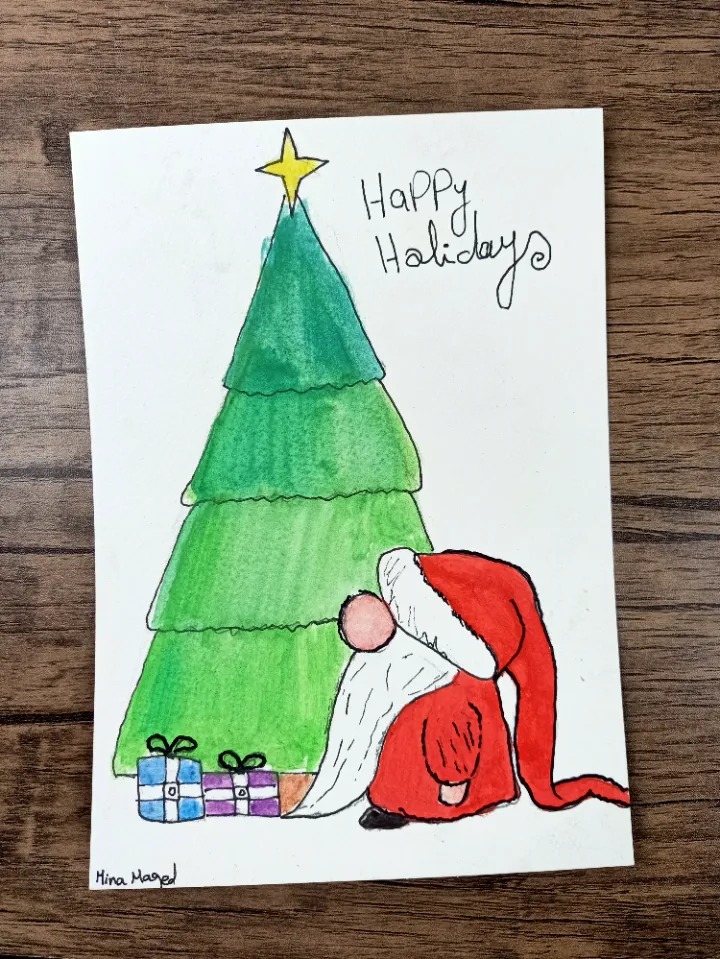 Happy
Holidays
Mina Maged